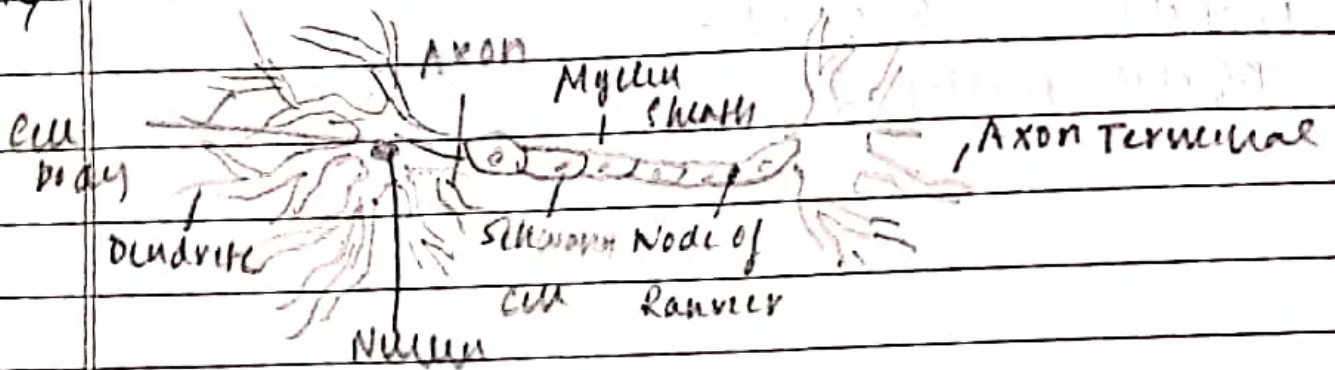 Axon
Myelin
Sheath
Cell
body
Axon Terminal
Dendrite
Schwann Node of
Cell Ranvier
Nucleus